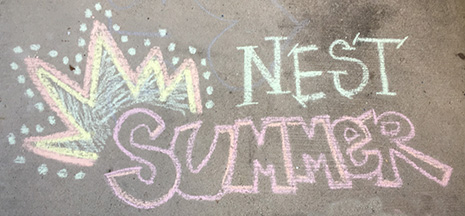 NEST
SUMMER